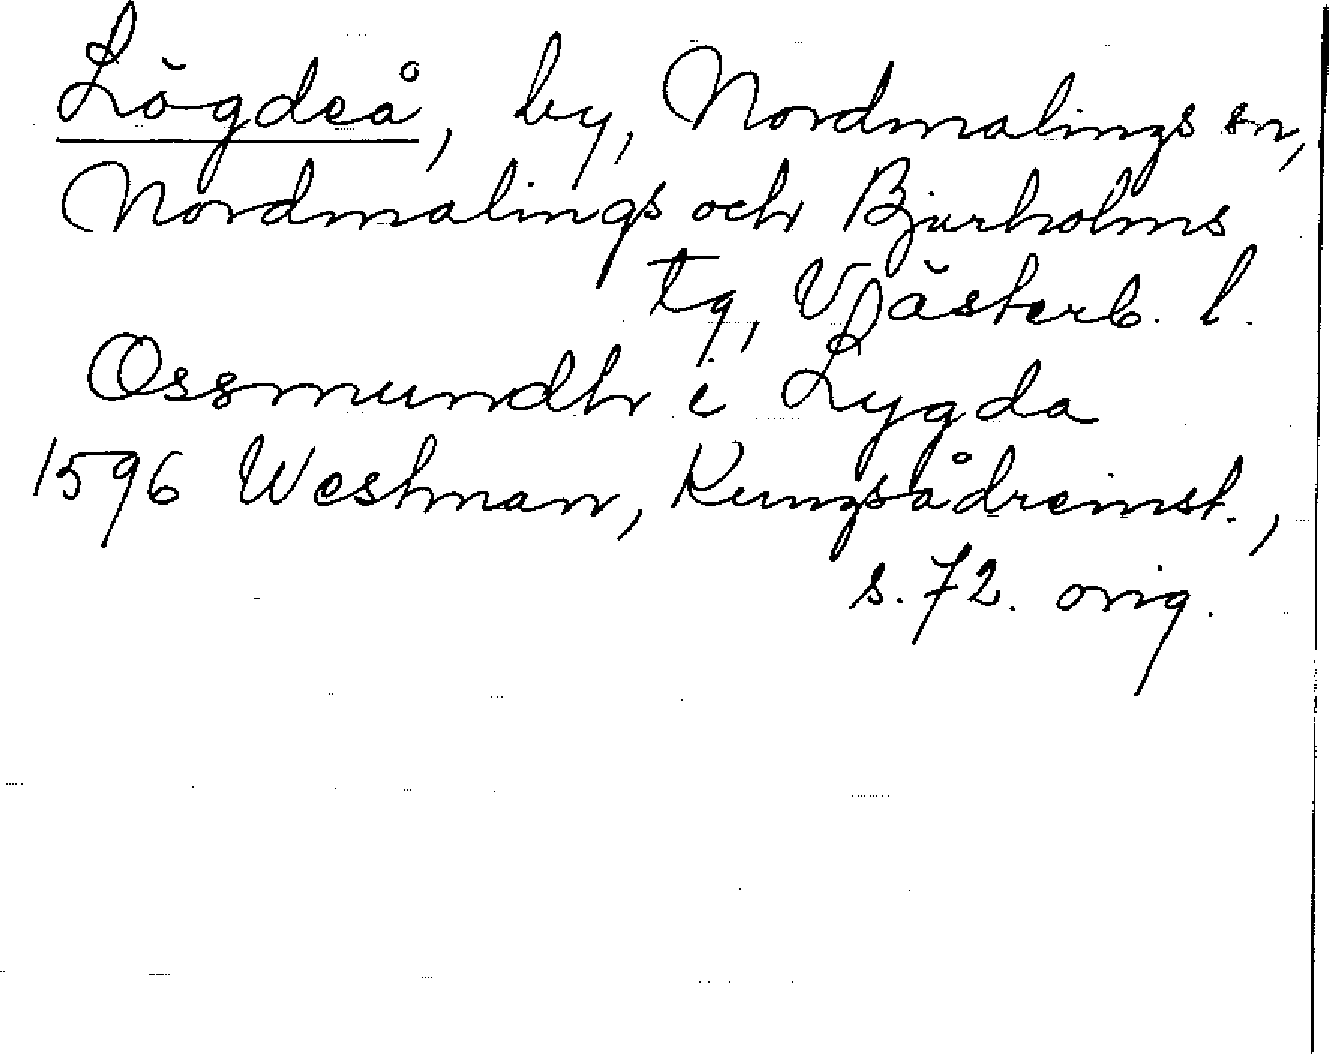 Lögdeå, by, Nordmalings sn,
Nordmalings och Bjurholms
tg, Västerb. l.
Ossmundh i Lygda
1596 Westman, Kungsådreinst.,
s. 72. orig.